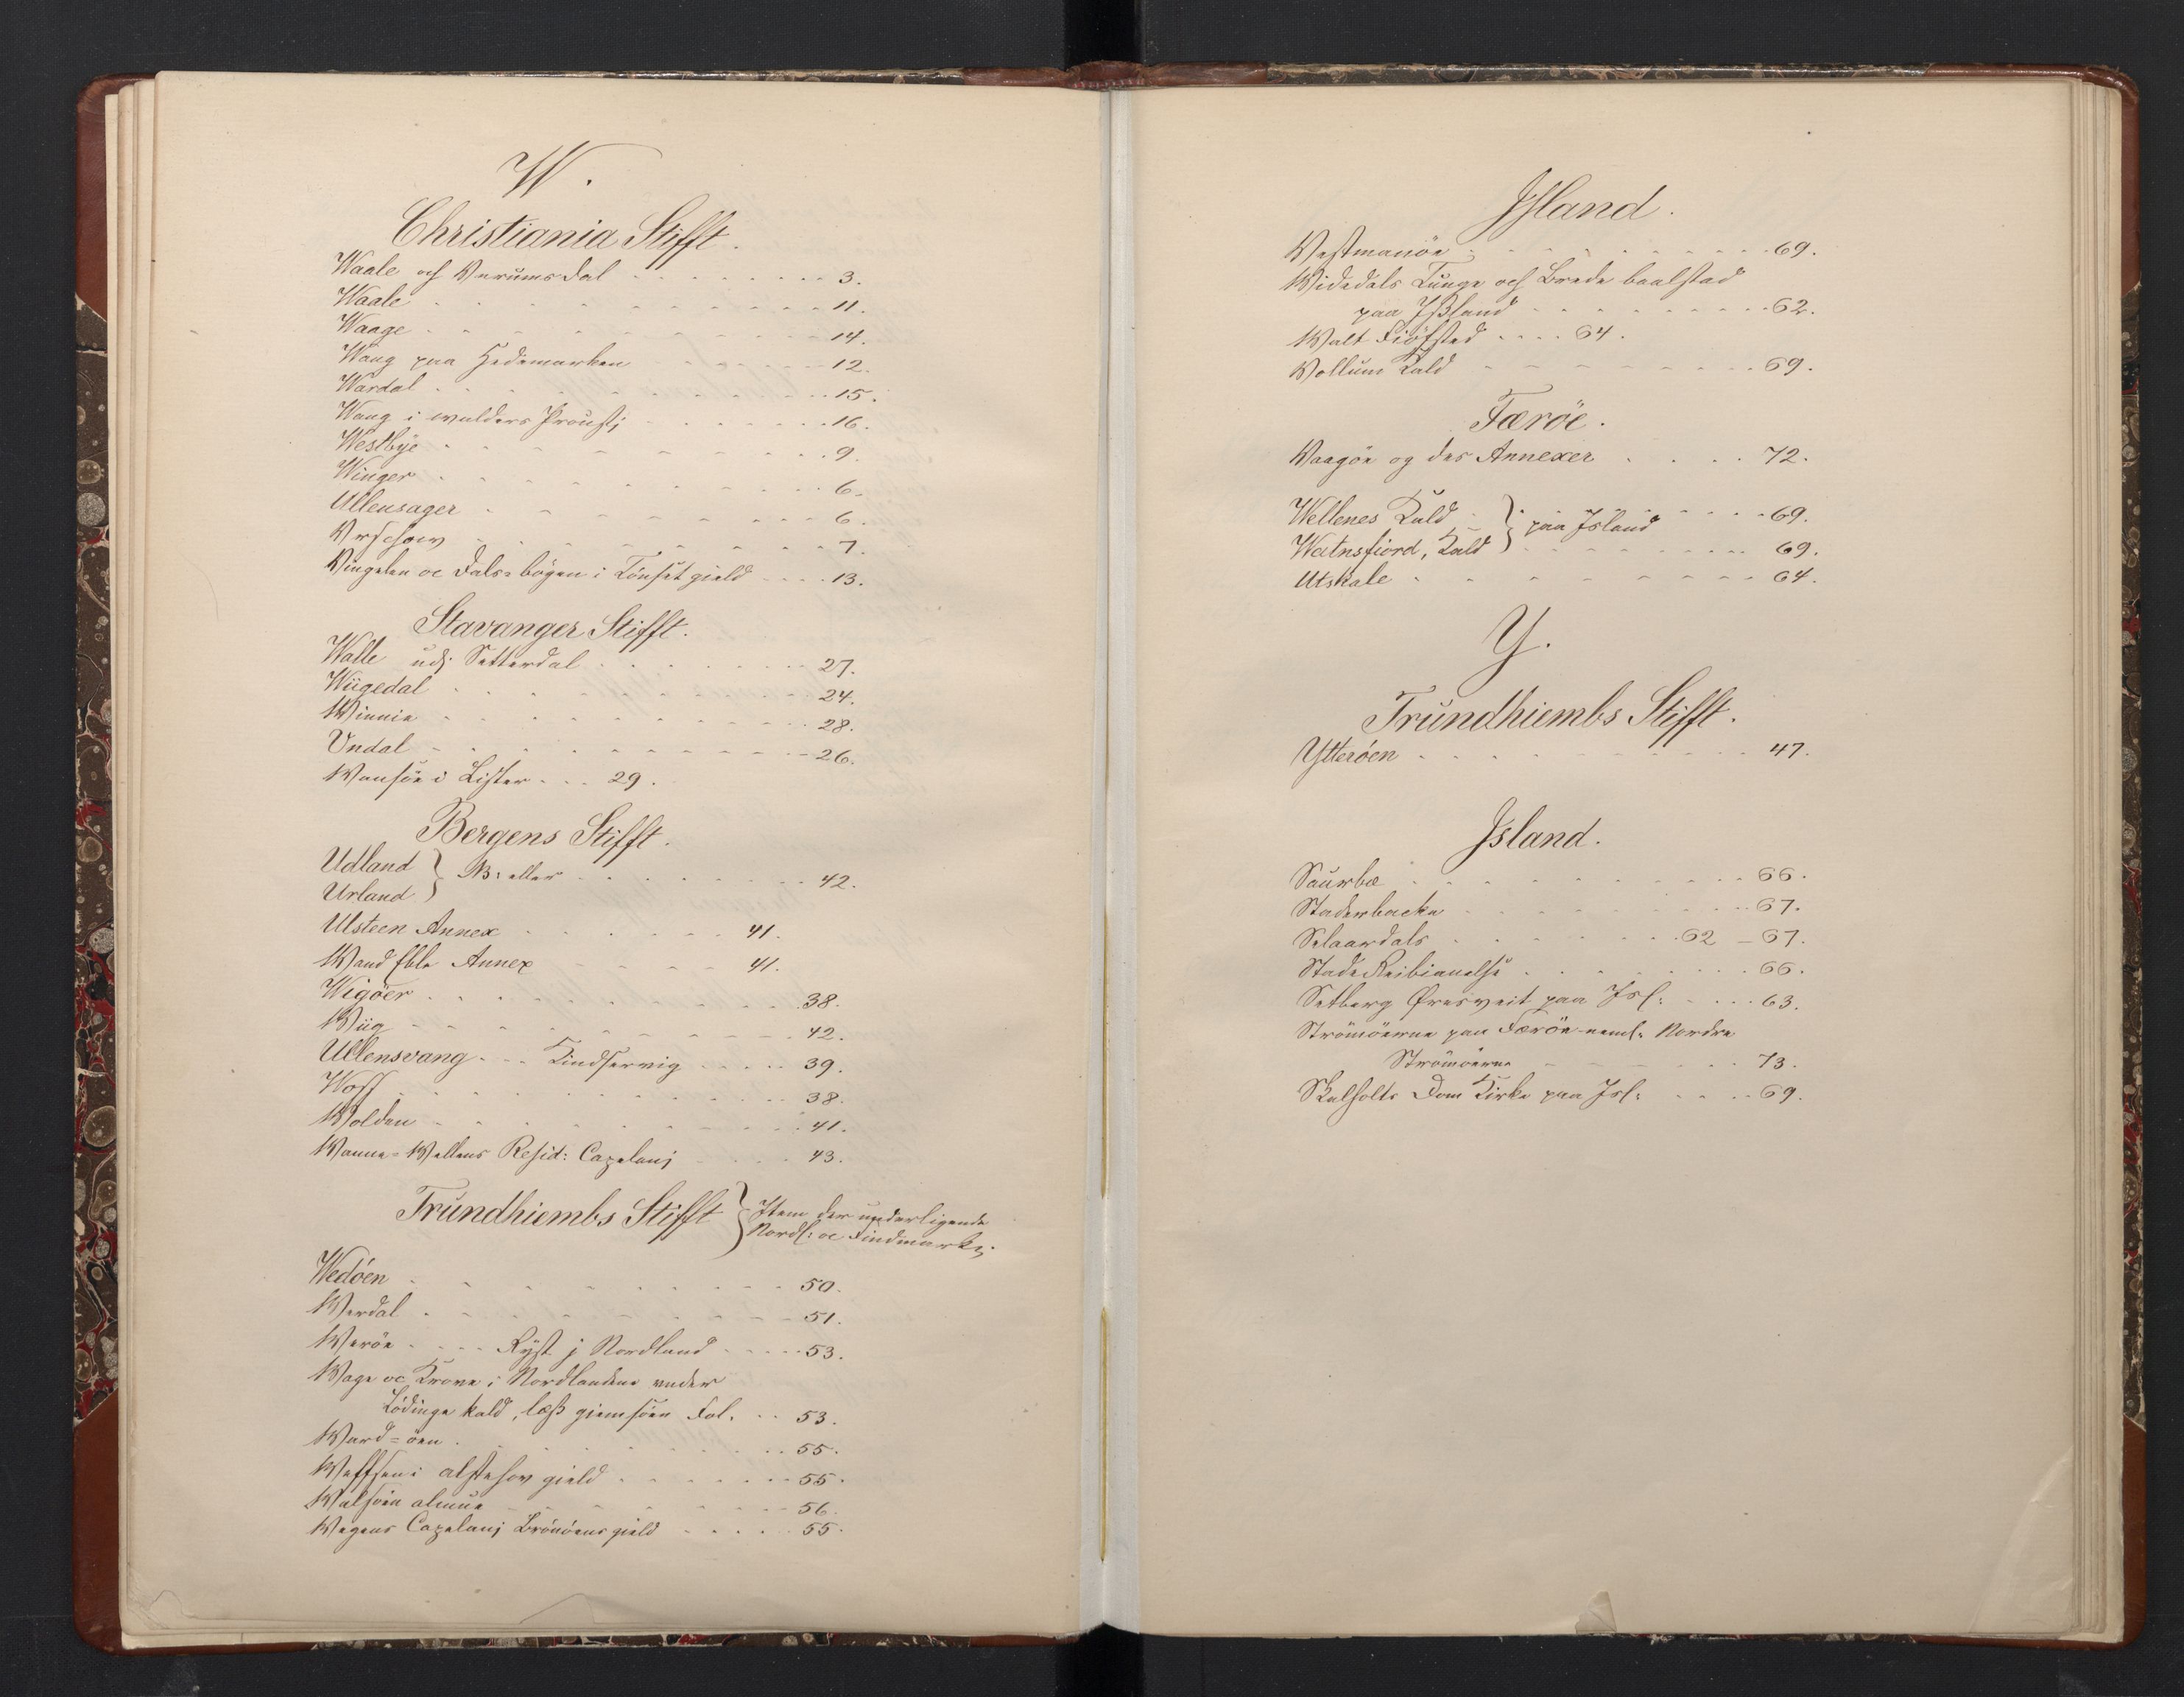 W.
Christiania Stifft.
Waale och Verumsdal 3.
Waale 11.
Waage 14.
Wang paa Hedemarken 12.
Wardal 15.
Wang i walders Proustj 16.
Westbÿe 9.
Winger 6.
Ullensager 6.
Urschow 7.
Vingelen oc Dals=bögen i Tönset gield 13.
Stavanger Stifft.
Walle udj Setterdal 27.
Wiigedal 24.
Winnie 28.
Undal 26.
Wansöe i Lister 29.
Bergens Stifft.
Udland } NB: eller 42.
Urland
Ulsteen Annex 41.
Wand Elle Annex 41.
Wigöer 38.
Wiig 42.
Ullensvang Kindservig 39.
Woss 38.
Wolden 41.
Wanne=Wellens Resid: Capelanj 43.
Trundhiembs Stifft } Item der underligende
Nordl: oc Findmarken
Wedöen 50.
Werdal 51.
Weröe Ryst j Nordland 53.
Wage oc Krone i Nordlandene under
Lödinge kald, læs giemsöen Fol. 53.
Ward=öen 55.
Weffsen i alstahow gield 55.
Walsöen almue 56.
Wegens Capelanj Brönöens gield 55.
Island.
Vestmanöe 69.
Widedals Tunge och Brede baalstad
paa Jsland 62.
Walt Fiöfsted 64.
Vollum Kald 69.
Færöe.
Waagöe og des Annexer 72.
Wellenes Kald } paa Island 69.
Watnsfiord, Kald 69.
Utskale 64.
Y.
Trundhiembs Stifft.
Ytteröen 47.
Island.
Saurbæ 66.
Staderbacke 67.
Selaardals 62 - 67.
Stade 66.
Setberg paa Isl: 63.
Strömöerne paa Færöe neml. Nordre
Strömöerne 73.
Skalholts Dom Kirke paa Isl: 69.